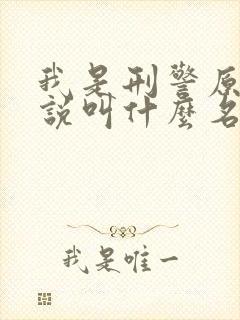 我是刑警原
說叫什麼名
我是唯一